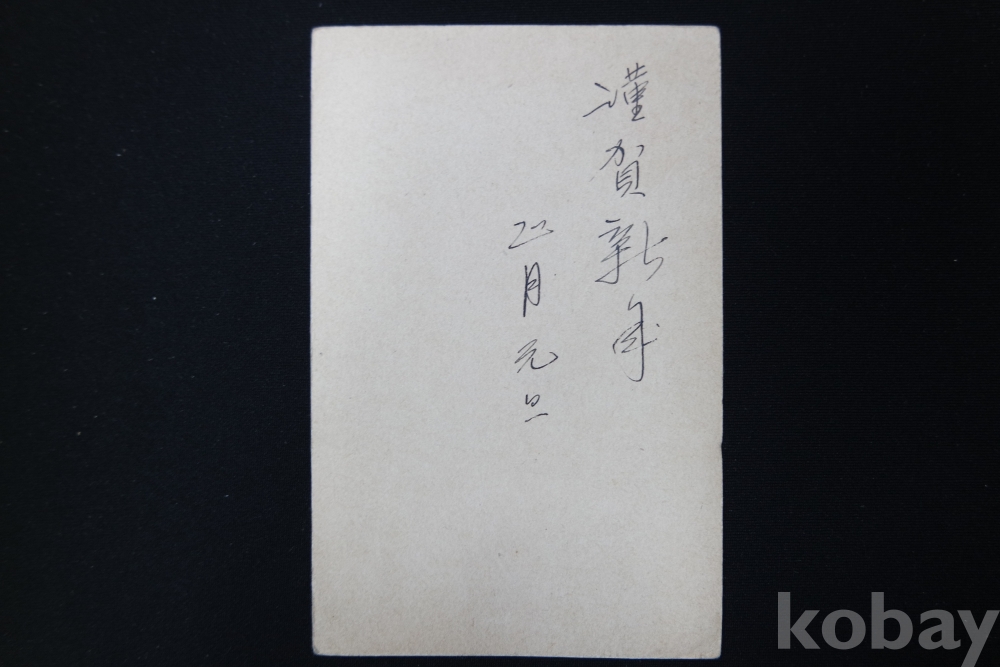 謹賀新年
正月元旦
kobay